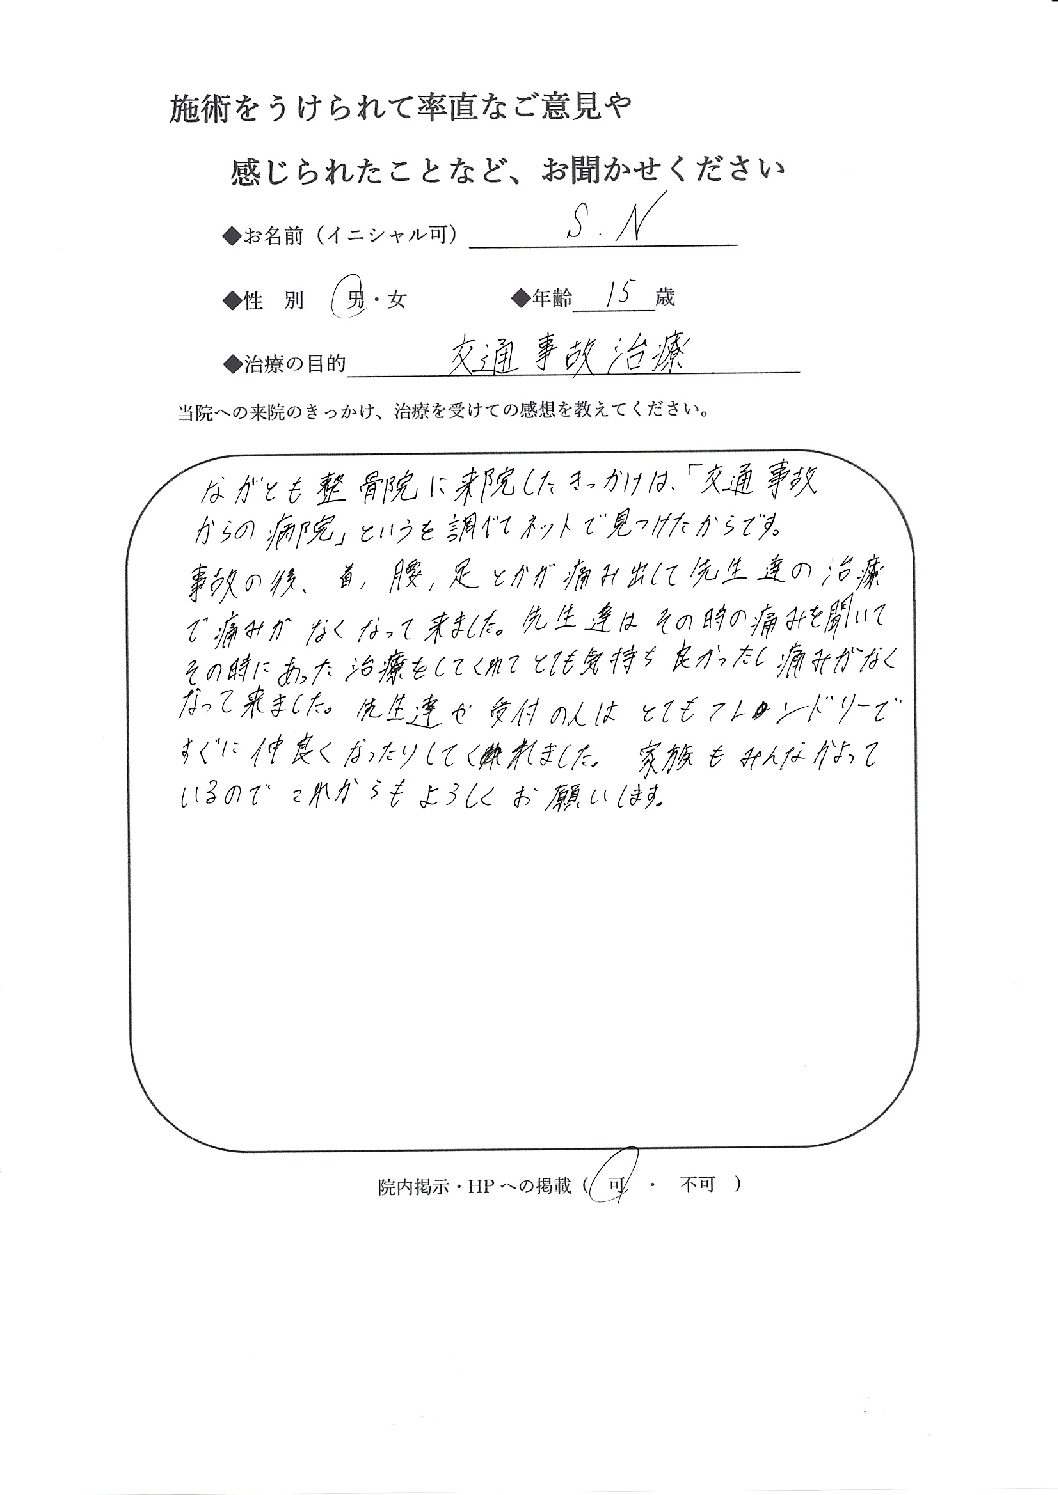 施術をうけられて率直なご意見や
感じられたことなど、お聞かせください
◆お名前（イニシャル可） S.N
◆性 別 男・女 ◆年齢 15 歳
◆治療の目的 交通事故治療
当院への来院のきっかけ、治療を受けての感想を教えてください。
ながとも整骨院に来院したきっかけは、「交通事故
からの病院」というを調べてネットで見つけたからです。
事故の後、首,腰,足とかが痛み出して先生達の治療
で痛みがなくなって来ました。先生達はその時の痛みを聞いて
その時にあった治療をしてくれてとても気持ち良かったし痛みがなく
なって来ました。先生達や受付の人はとてもフレンドリーで
すぐに仲良くなったりしてくれました。家族もみんなかよって
いるのでこれからもよろしくお願いします。
院内掲示・HPへの掲載（ 可 ・ 不可 ）